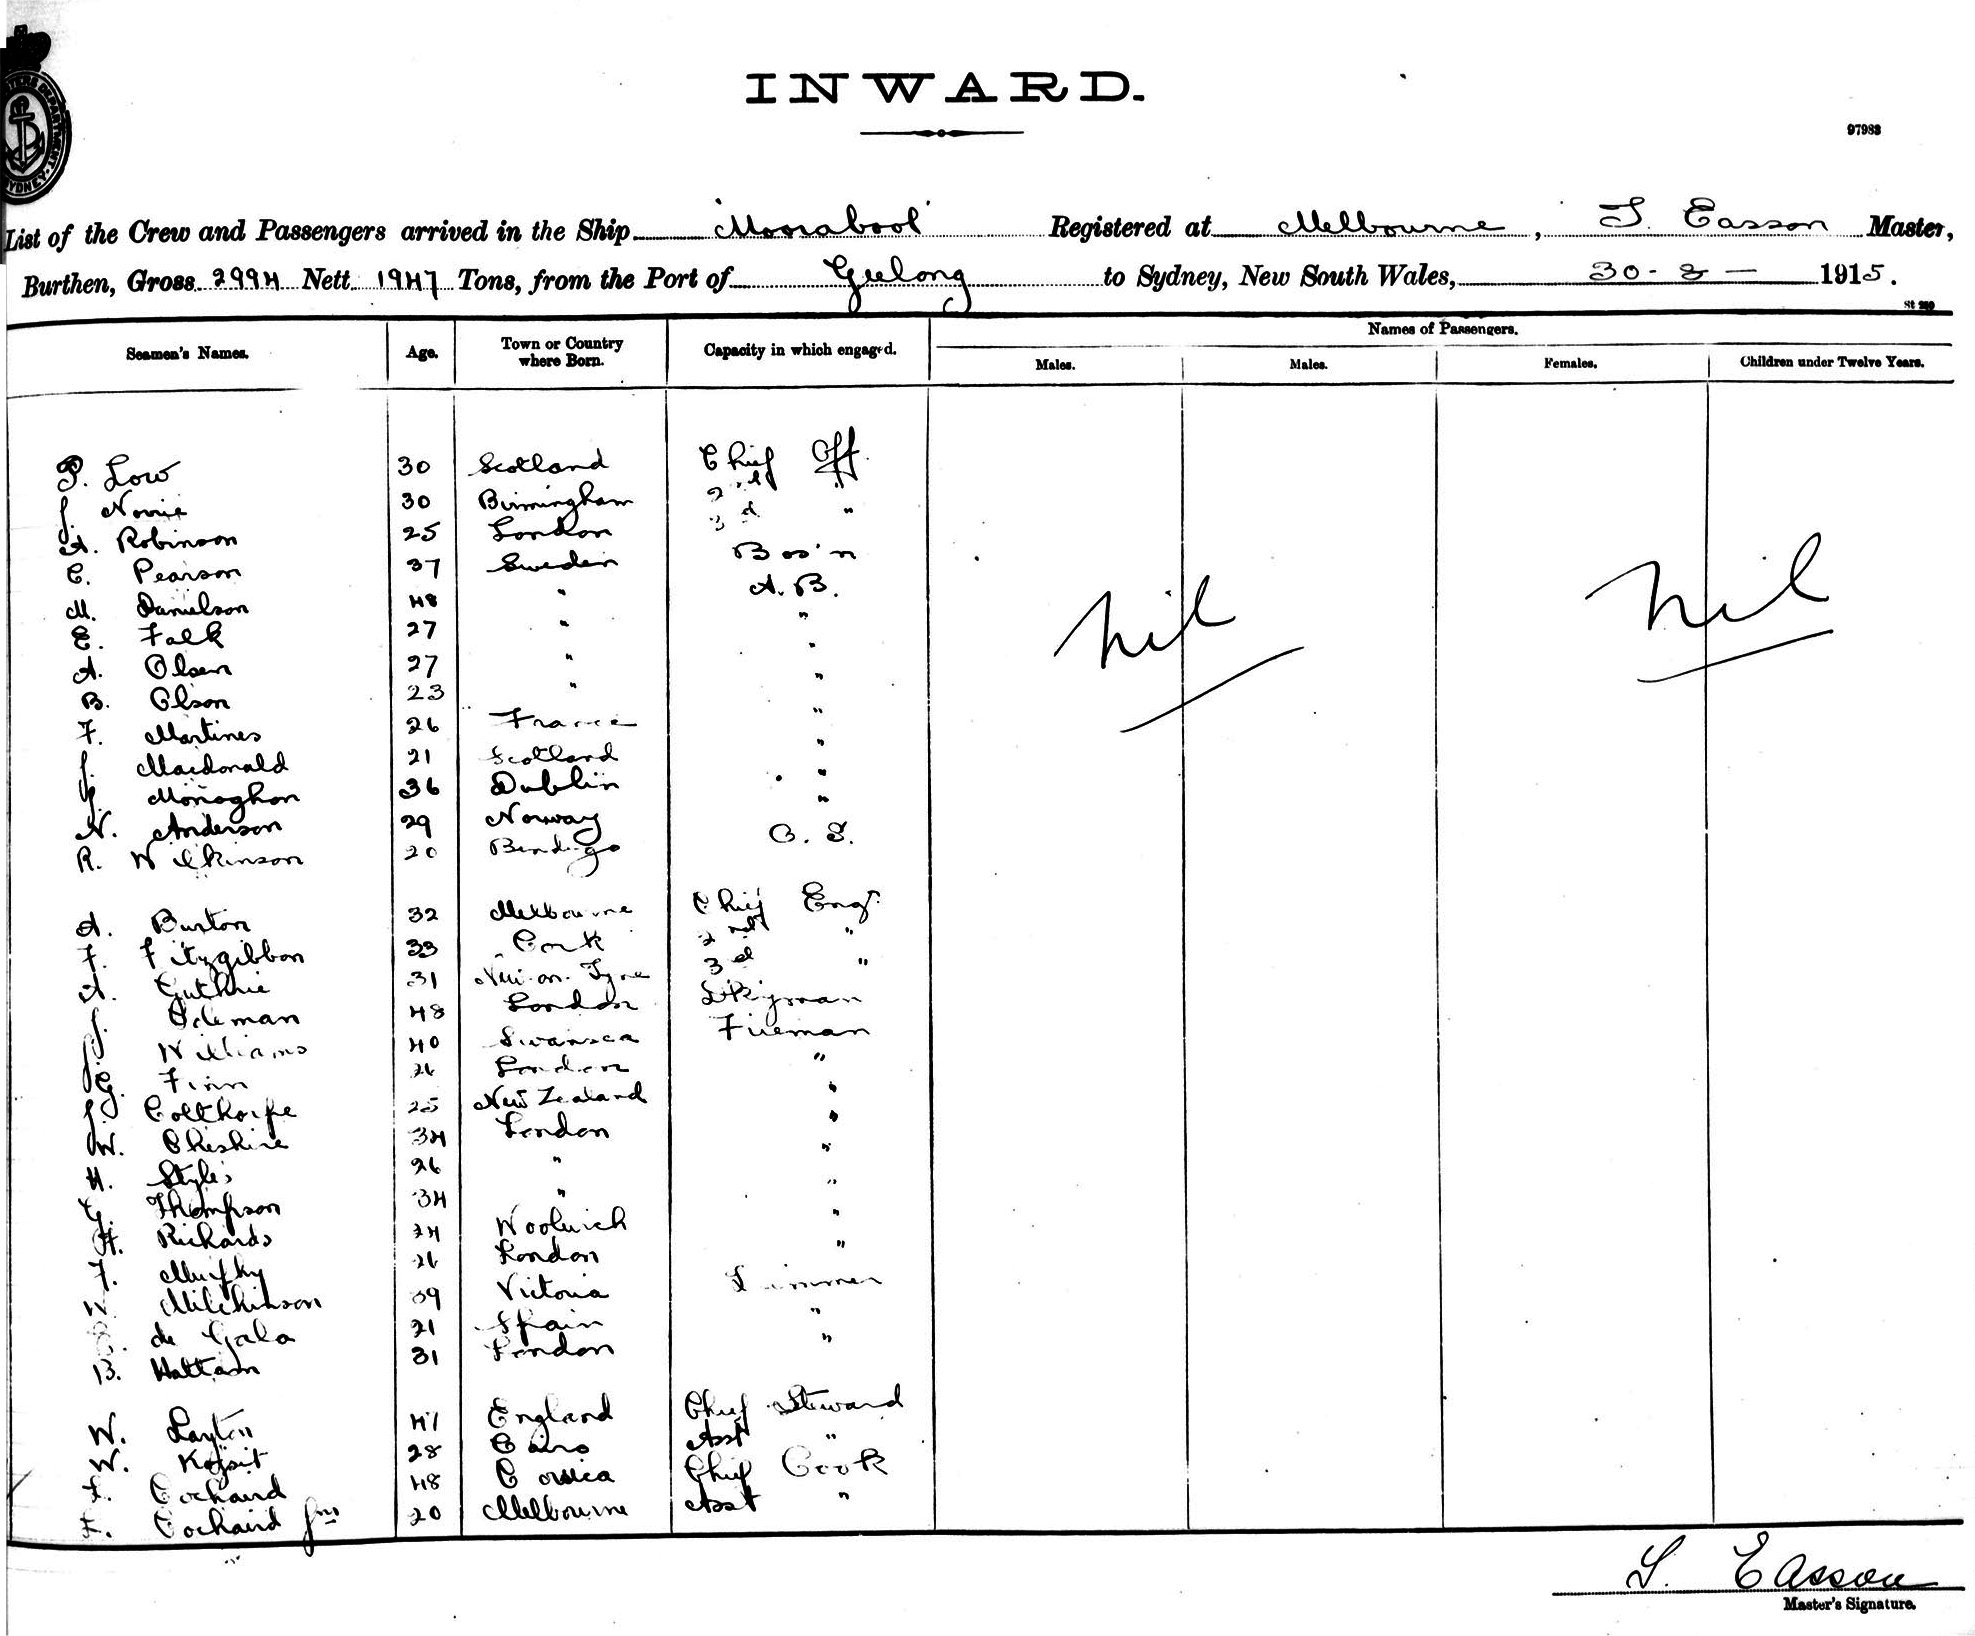 INWARD.
97983
List of the Crew and Passengers arrived in the Ship "Moorabool" Registered at Melbourne, Easson Master,
Burthen, Gross 2994 Nett 1947 Tons, from the Port of Geelong to Sydney, New South Wales, 30-8- 1915.
Seamen's Names. Age. Town or Country where Born. Capacity in which engaged. Names of Passengers.
Males. Males. Females. Children under Twelve Years.
P. Low 30 Scotland Chief Off.
J. Norrie 30 Birmingham 2nd "
A. Robinson 25 London 3rd "
C. Pearson 37 Sweden Bos'n
M. Danielson 48 " A.B.
E. Falk 27 " "
A. Olsen 27 " "
B. Olson 23 " "
F. Martines 26 France "
J. Macdonald 21 Scotland "
J. Monoghon 36 Dublin "
N. Anderson 29 Norway "
R. Wilkinson 20 Bendigo O.S.
nil nil
A. Burton 32 Melbourne Chief Engr.
F. Fitzgibbon 33 Cork 2nd "
A. Guthrie 31 3rd "
J. Coleman 48 London Dkyman
J. Williams 40 Swansea Fireman
G. Finn 26 London "
J. Colthorpe 25 New Zealand "
W. Cheshire 34 London "
H. Styles 26 " "
G. Thompson 34 " "
H. Richards 24 Woolwich "
F. Murphy 26 London "
W. Mitchinson 39 Victoria Trimmer
de Gala 21 Spain "
B. Hattam 31 London "
W. Layton 47 England Chief Steward
W. 28 Cairo Asst "
F. Cochaird 48 Corsica Chief Cook
F. Cochaird Jnr 20 Melbourne Asst "
Easson
Master's Signature.